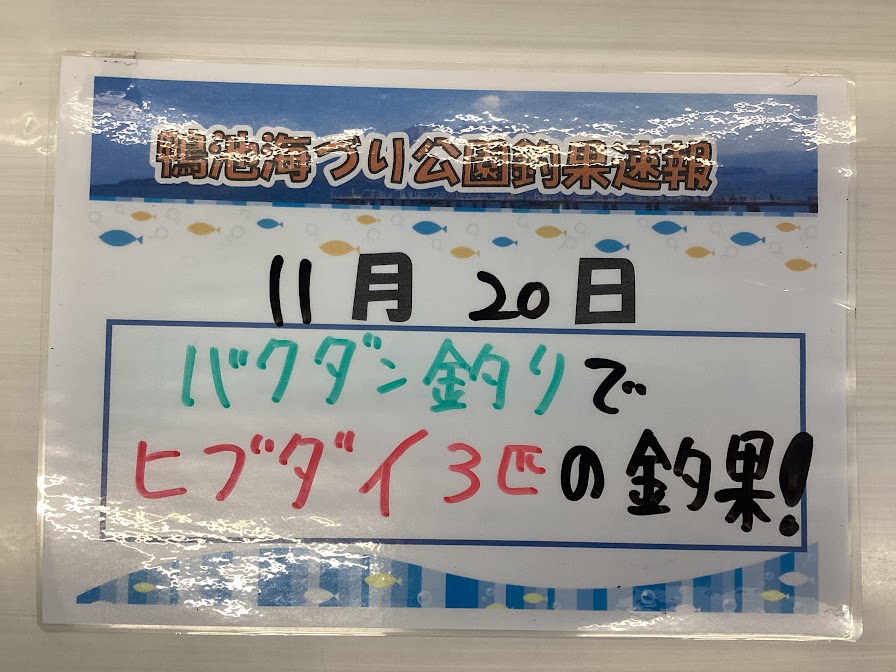 鴨池海づり公園釣果速報
11月20日
バクダン釣りで
ヒブダイ3匹の釣果!